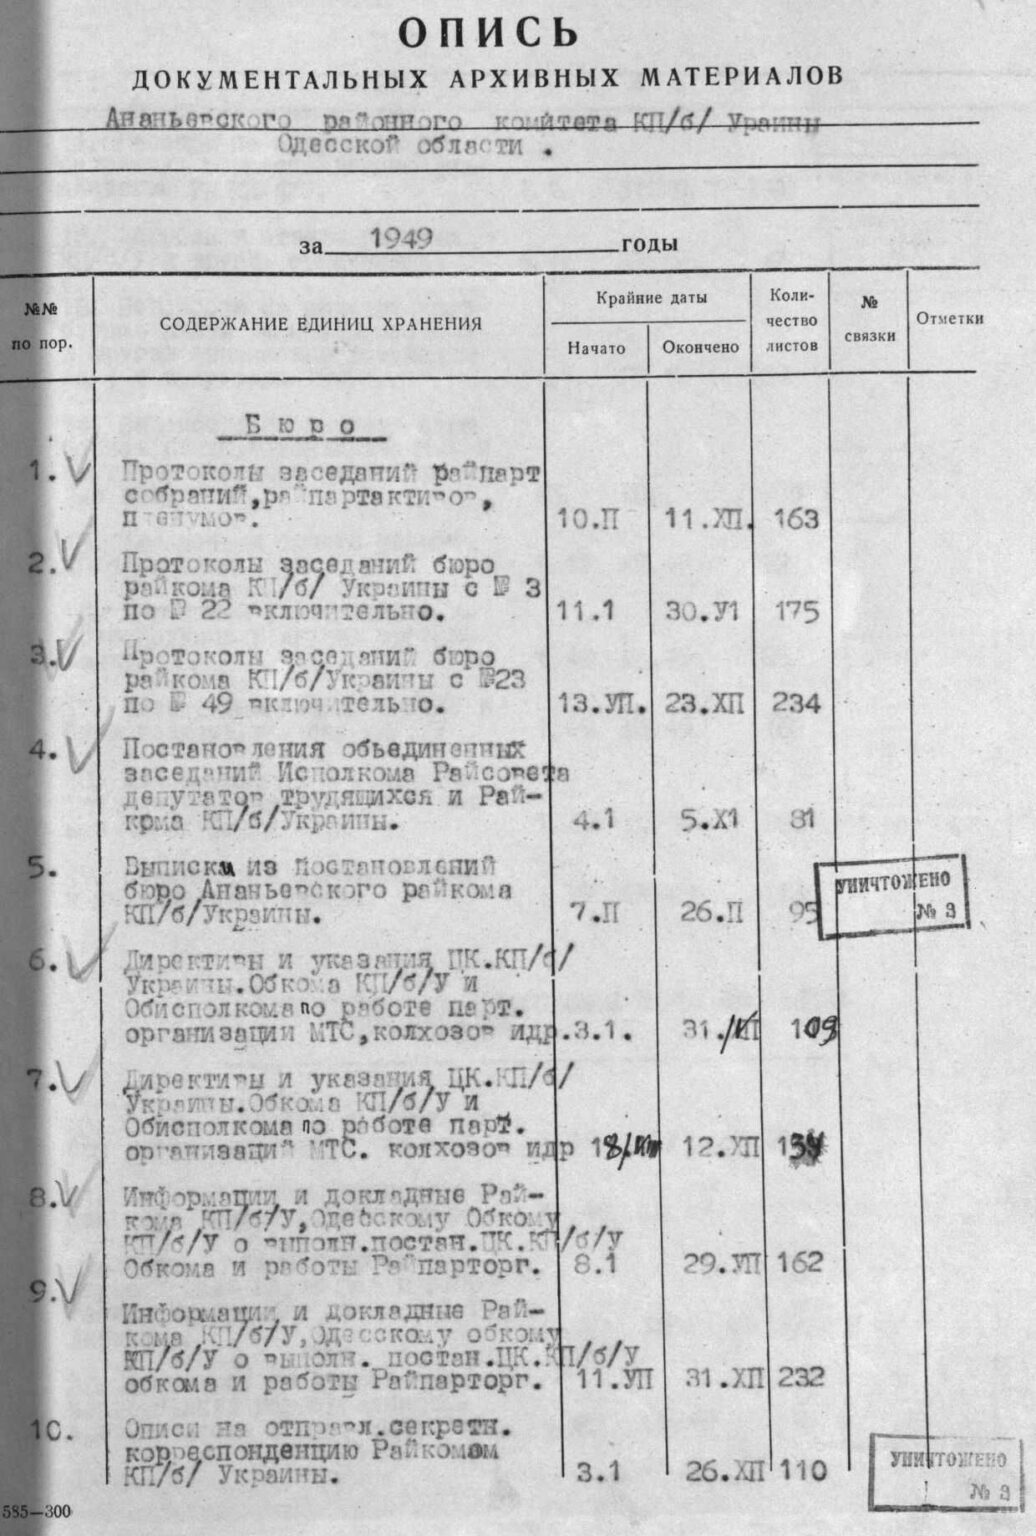 ОПИСЬ
ДОКУМЕНТАЛЬНЫХ АРХИВНЫХ МАТЕРИАЛОВ
Ананьевского районного комитета КП/б/ Краины
Одесской области .
за 1949 годы
№№ по пор.
СОДЕРЖАНИЕ ЕДИНИЦ ХРАНЕНИЯ
Крайние даты
Начато
Окончено
Коли-
чество
листов
№
связки
Отметки
Бюро
1. Протоколы заседаний райпарт
собраний,райпартактивов,
пленумов. 10.П 11.ХП. 163
2. Протоколы заседаний бюро
райкома КП/б/ Украины с № 3
по № 22 включительно. 11.1 30.У1 175
3. Протоколы заседаний бюро
райкома КП/б/Украины с №23
по № 49 включительно. 13.УП. 23.ХП 234
4. Постановления обьединенных
заседаний Исполкома Райсовета
депутатов трудящихся и Рай-
кома КП/б/Украины. 4.1 5.Х1 81
5. Выписки из постановлений
бюро Ананьевского райкома
КП/б/Украины. 7.П 26.П 95
УНИЧТОЖЕНО
№ 3
6. Директивы и указания ЦК.КП/б/
Украины.Обкома КП/б/У и
Обисполкома по работе парт.
организации МТС,колхозов идр.3.1. 31. 109
7. Директивы и указания ЦК.КП/б/
Украины.Обкома КП/б/У и
Обисполкома по работе парт.
организаций МТС. колхозов идр 12.ХП
8. Информации и докладные Рай-
кома КП/б/У,Одесскому Обкому
КП/б/У о выполн.постан.ЦК.КП/б/У
Обкома и работы Райпарторг. 8.1 29.УП 162
9. Информации и докладные Рай-
кома КП/б/У,Одесскому обкому
КП/б/У о выполн. постан.ЦК.КП/б/У
обкома и работы Райпарторг. 11.УП 31.ХП 232
10. Описи на отправл.секретн.
корреспонденцию Райкомом
КП/б/ Украины. 3.1 26.ХП 110
УНИЧТОЖЕНО
№ 3
585—300